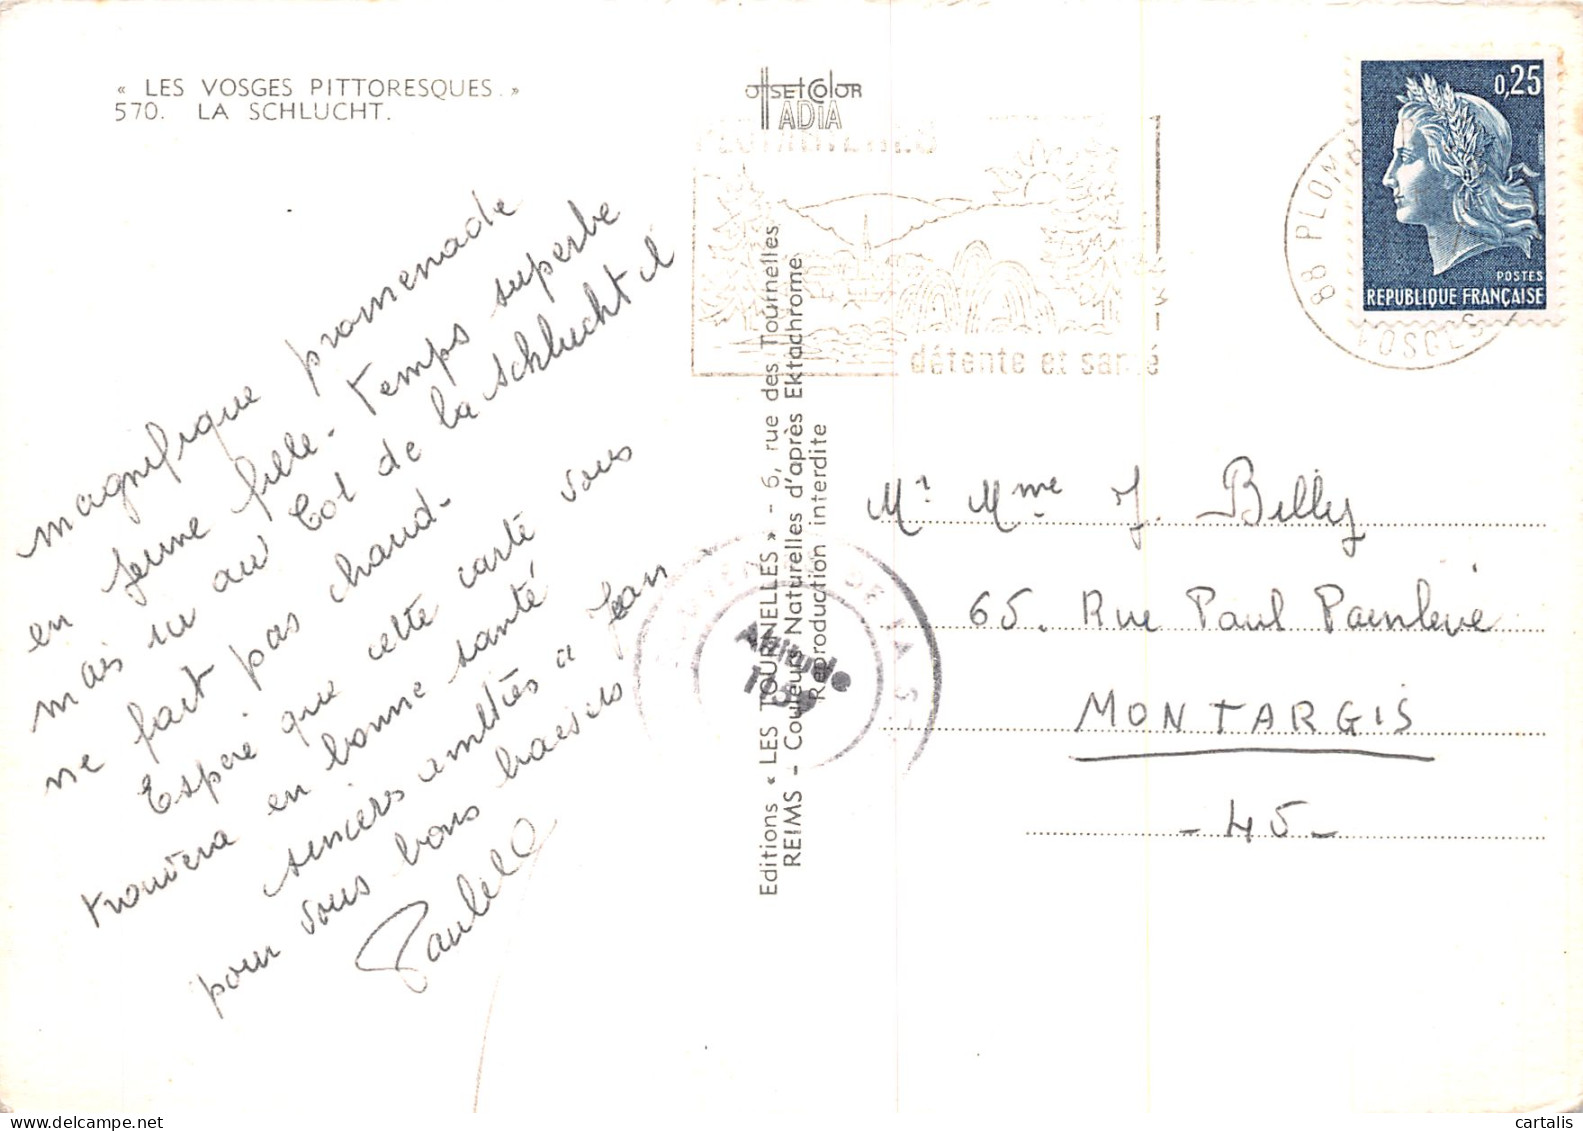 « LES VOSGES PITTORESQUES. »
570. LA SCHLUCHT.
magnifique promenade
en jeune fille - temps superbe
mais ici au Col de la schlucht il
ne fait pas chaud -
Espère que cette carte vous
trouvera en bonne santé
sincères amitiés à Jean
pour vous bons baisers
OFFSET COLOR
IADIA
détente et santé
Editions « LES TOURNELLES » - 6, rue des Tournelles
REIMS - Couleurs Naturelles d'après Ektachrome
Reproduction interdite
Altitude
88 PLOMB
VOSGES
0,25
POSTES
REPUBLIQUE FRANÇAISE
Mr Mme J. Billy
65. Rue Paul Painlevé
MONTARGIS
- 45 -
cartalis